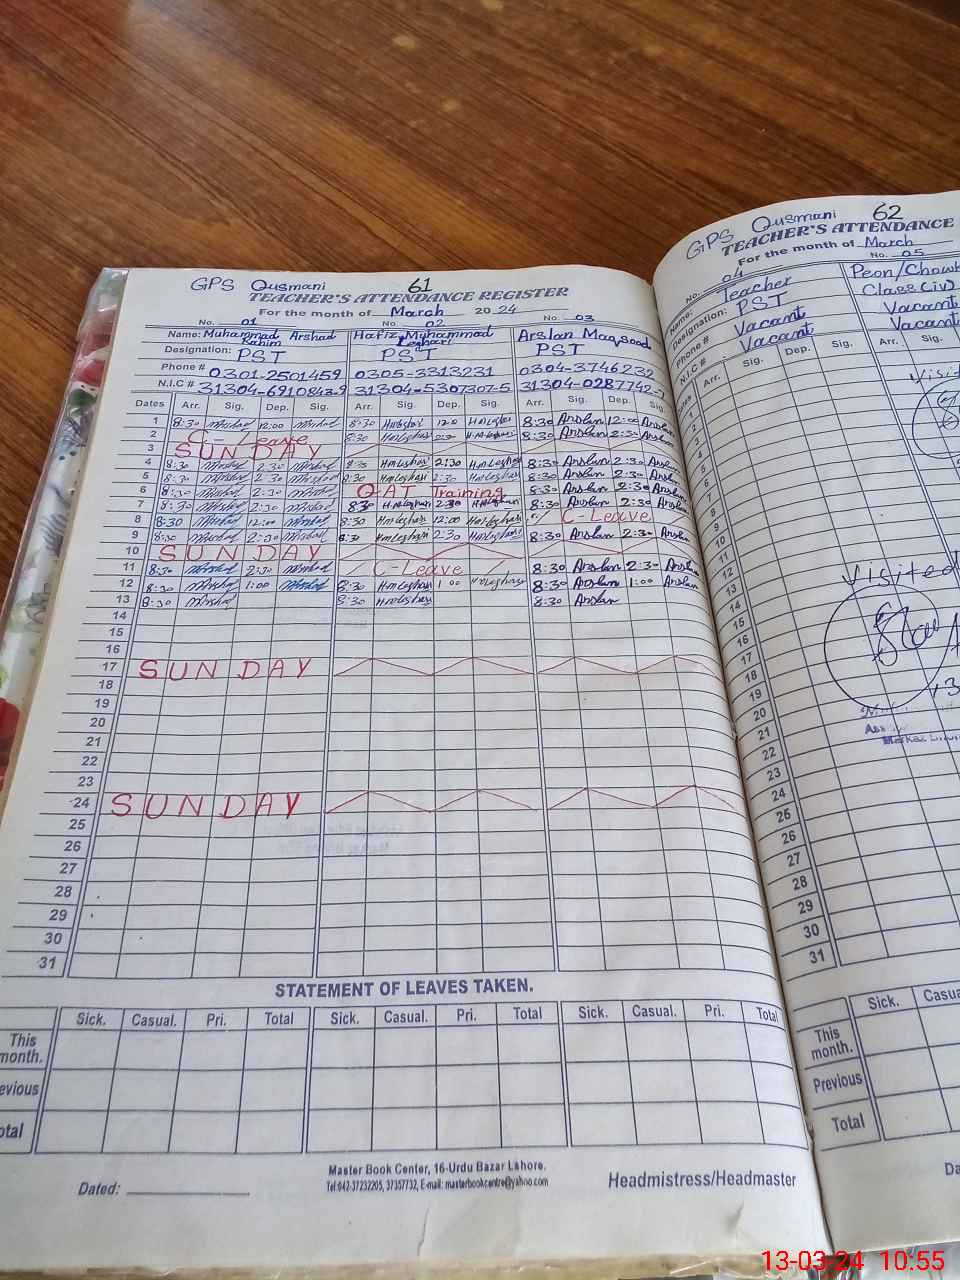 GPS Qusmani 61
TEACHER'S ATTENDANCE REGISTER
For the month of March 2024
No. 01 No. 02 No. 03
Name: Muhammad Rahim Arshad Hafiz Muhammad Leghari Arslan Maqsood
Designation: PST PST PST
Phone # 0301-2501459 0305-3313231 0304-3746232
N.I.C # 31304-6910843-9 31304-5307307-5 31304-0287742-7
Dates Arr. Sig. Dep. Sig. Arr. Sig. Dep. Sig. Arr. Sig. Dep. Sig.
1 8:30 Arshad 12:00 Arshad 8:30 HMLeghari 12:0 HMLeghari 8:30 Arslan 12:00 Arslan
2 C-Leave 8:30 HMLeghari 2:30 HMLeghari 8:30 Arslan 2:30 Arslan
3 SUNDAY
4 8:30 Arshad 2:30 Arshad 8:30 HMLeghari 2:30 HMLeghari 8:30 Arslan 2:30 Arslan
5 8:30 Arshad 2:30 Arshad 8:30 HMLeghari 2:30 HMLeghari 8:30 Arslan 2:30 Arslan
6 8:30 Arshad 2:30 Arshad QAT Training 8:30 Arslan 2:30 Arslan
7 8:30 Arshad 2:30 Arshad 8:30 HMLeghari 2:30 HMLeghari 8:30 Arslan 2:30 Arslan
8 8:30 Arshad 12:00 Arshad 8:30 HMLeghari 12:00 HMLeghari C-Leave
9 8:30 Arshad 2:30 Arshad 8:30 HMLeghari 2:30 HMLeghari 8:30 Arslan 2:30 Arslan
10 SUNDAY
11 8:30 Arshad 2:30 Arshad C-Leave 8:30 Arslan 2:30 Arslan
12 8:30 Arshad 1:00 Arshad 8:30 HMLeghari 1:00 HMLeghari 8:30 Arslan 1:00 Arslan
13 8:30 Arshad 8:30 HMLeghari 8:30 Arslan
14
15
16
17 SUNDAY
18
19
20
21
22
23
24 SUNDAY
25
26
27
28
29
30
31
STATEMENT OF LEAVES TAKEN.
Sick. Casual. Pri. Total Sick. Casual. Pri. Total Sick. Casual. Pri. Total
This month.
Previous
Total
Master Book Center, 16-Urdu Bazar Lahore.
Tel:042-37232205, 37357732, E-mail: masterbookcentre@yahoo.com
Dated: Headmistress/Headmaster
GPS Qusmani 62
TEACHER'S ATTENDANCE
For the month of March
No. 04 No. 05
Name: Teacher Peon/Chowk
Designation: PST Class (iv)
Phone # Vacant Vacant
N.I.C # Vacant Vacant
Arr. Sig. Dep. Sig. Arr. Sig.
1
2
3
4
5
6
7
8
9
10
11
12
13
14
15
16
17
18
19
20
21
22
23
24
25
26
27
28
29
30
31
Visited
Sick. Casua
This month.
Previous
Total
Da
13-03-24 10:55